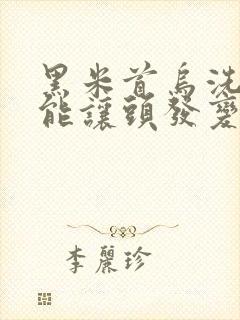 黑米首烏洗
能讓頭發變
李麗珍